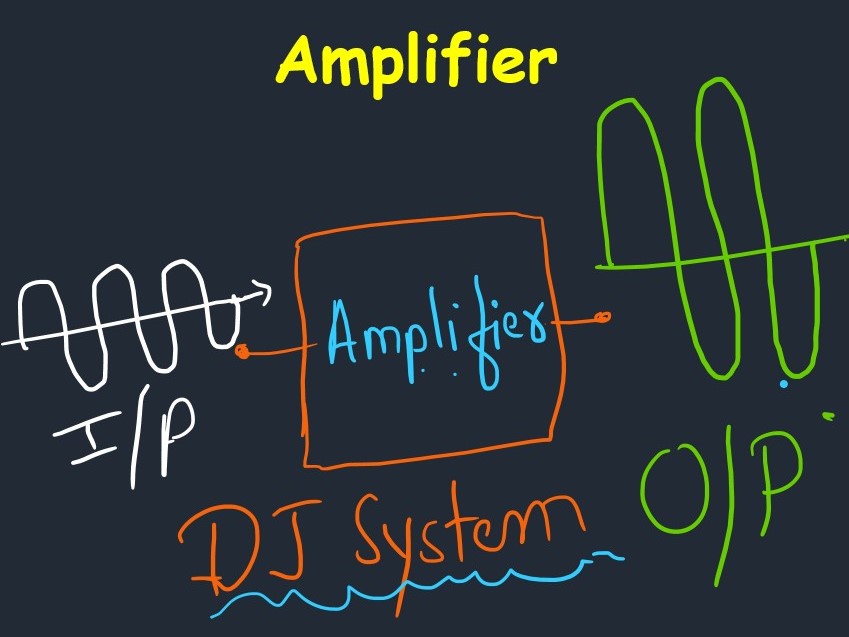 Amplifier
Amplifier
I/P
O/P
DJ System